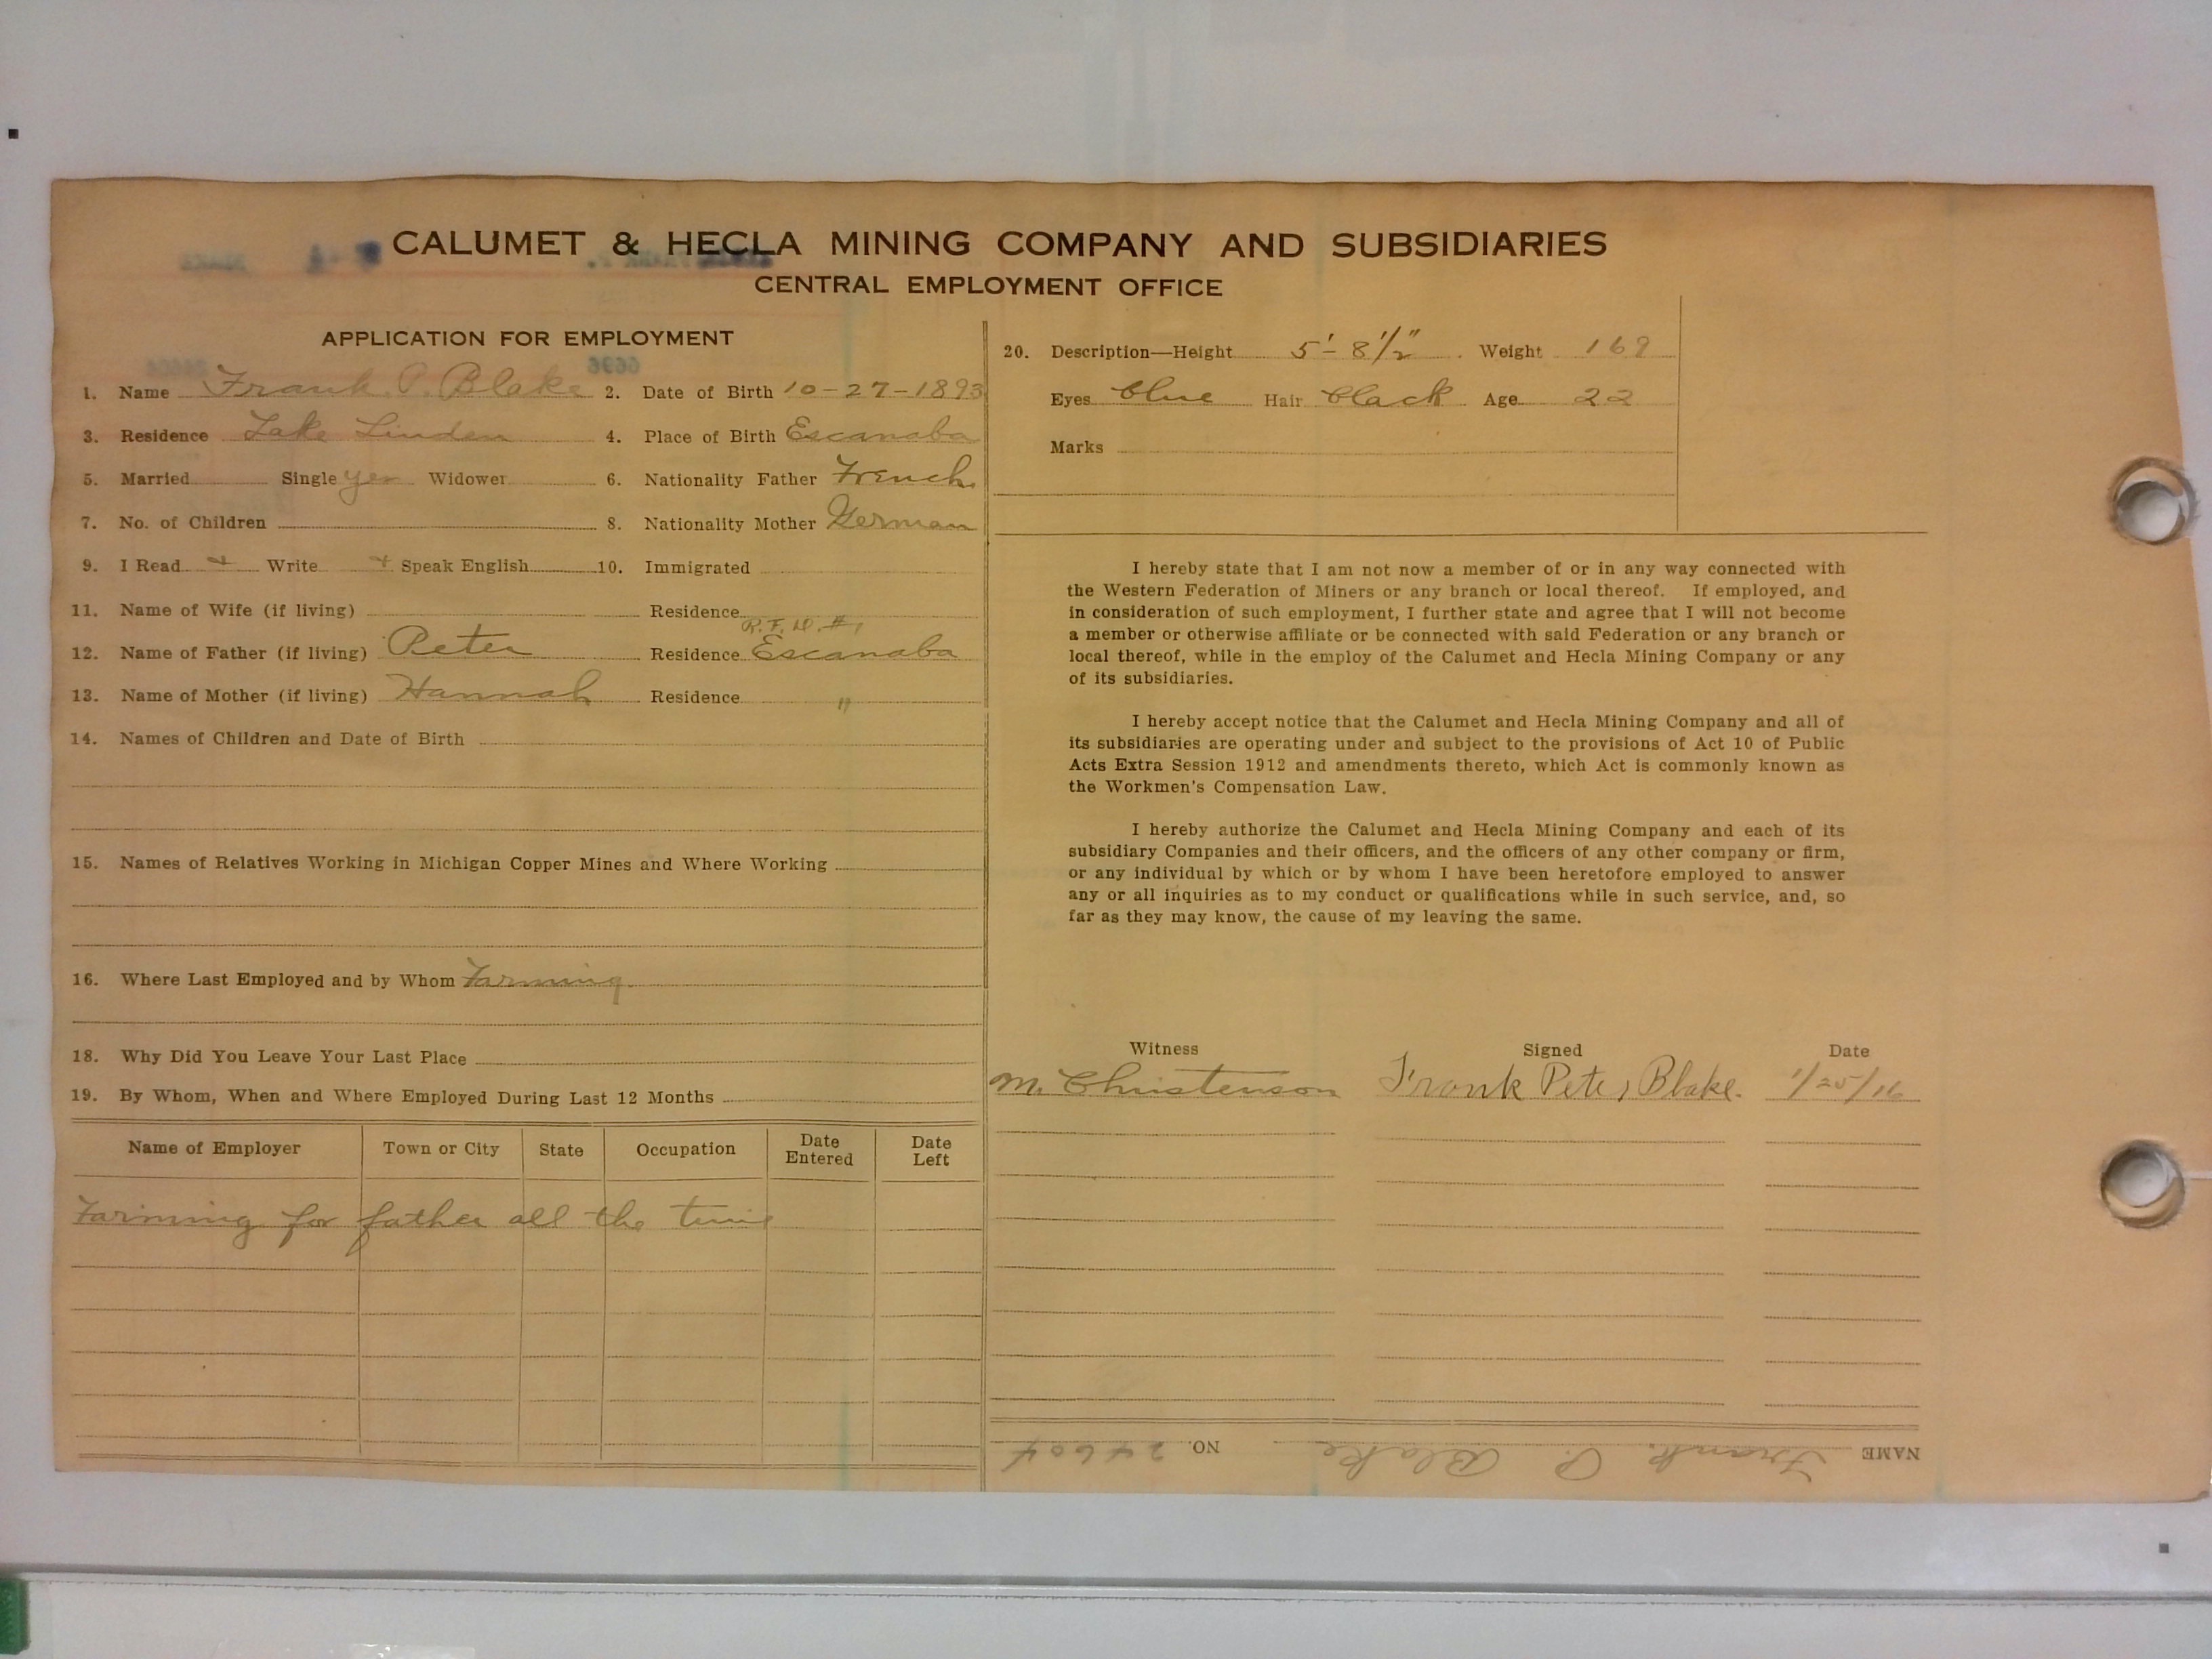 CALUMET & HECLA MINING COMPANY AND SUBSIDIARIES
CENTRAL EMPLOYMENT OFFICE
APPLICATION FOR EMPLOYMENT
1. Name Frank P. Blake 2. Date of Birth 10-27-1893
3. Residence Lake Linden 4. Place of Birth Escanaba
5. Married Single yes Widower 6. Nationality Father French
7. No. of Children 8. Nationality Mother German
9. I Read Write Speak English 10. Immigrated
11. Name of Wife (if living) Residence
R.F.D. #1
12. Name of Father (if living) Peter Residence Escanaba
13. Name of Mother (if living) Hannah Residence "
14. Names of Children and Date of Birth
15. Names of Relatives Working in Michigan Copper Mines and Where Working
16. Where Last Employed and by Whom Farming
18. Why Did You Leave Your Last Place
19. By Whom, When and Where Employed During Last 12 Months
Name of Employer Town or City State Occupation Date Entered Date Left
Farming for father all the time
20. Description—Height 5'-8 1/2" Weight 169
Eyes blue Hair black Age 22
Marks
I hereby state that I am not now a member of or in any way connected with
the Western Federation of Miners or any branch or local thereof. If employed, and
in consideration of such employment, I further state and agree that I will not become
a member or otherwise affiliate or be connected with said Federation or any branch or
local thereof, while in the employ of the Calumet and Hecla Mining Company or any
of its subsidiaries.
I hereby accept notice that the Calumet and Hecla Mining Company and all of
its subsidiaries are operating under and subject to the provisions of Act 10 of Public
Acts Extra Session 1912 and amendments thereto, which Act is commonly known as
the Workmen's Compensation Law.
I hereby authorize the Calumet and Hecla Mining Company and each of its
subsidiary Companies and their officers, and the officers of any other company or firm,
or any individual by which or by whom I have been heretofore employed to answer
any or all inquiries as to my conduct or qualifications while in such service, and, so
far as they may know, the cause of my leaving the same.
Witness Signed Date
M. Christenson Frank Peter Blake. 1/25/16
NAME Frank P. Blake NO. 24604